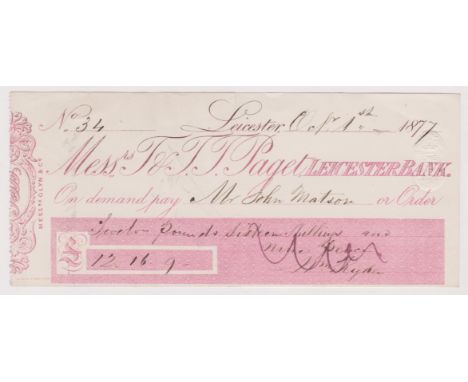 No. 34 Leicester Oct 1st 1877
Messrs T. & T. T. Paget LEICESTER BANK.
On demand pay Mr John Matson or Order
Twelve Pounds Sixteen Shillings and
nine Pence
£ 12 . 16 . 9
Wm Ryder
MESSRS GLYN & CO